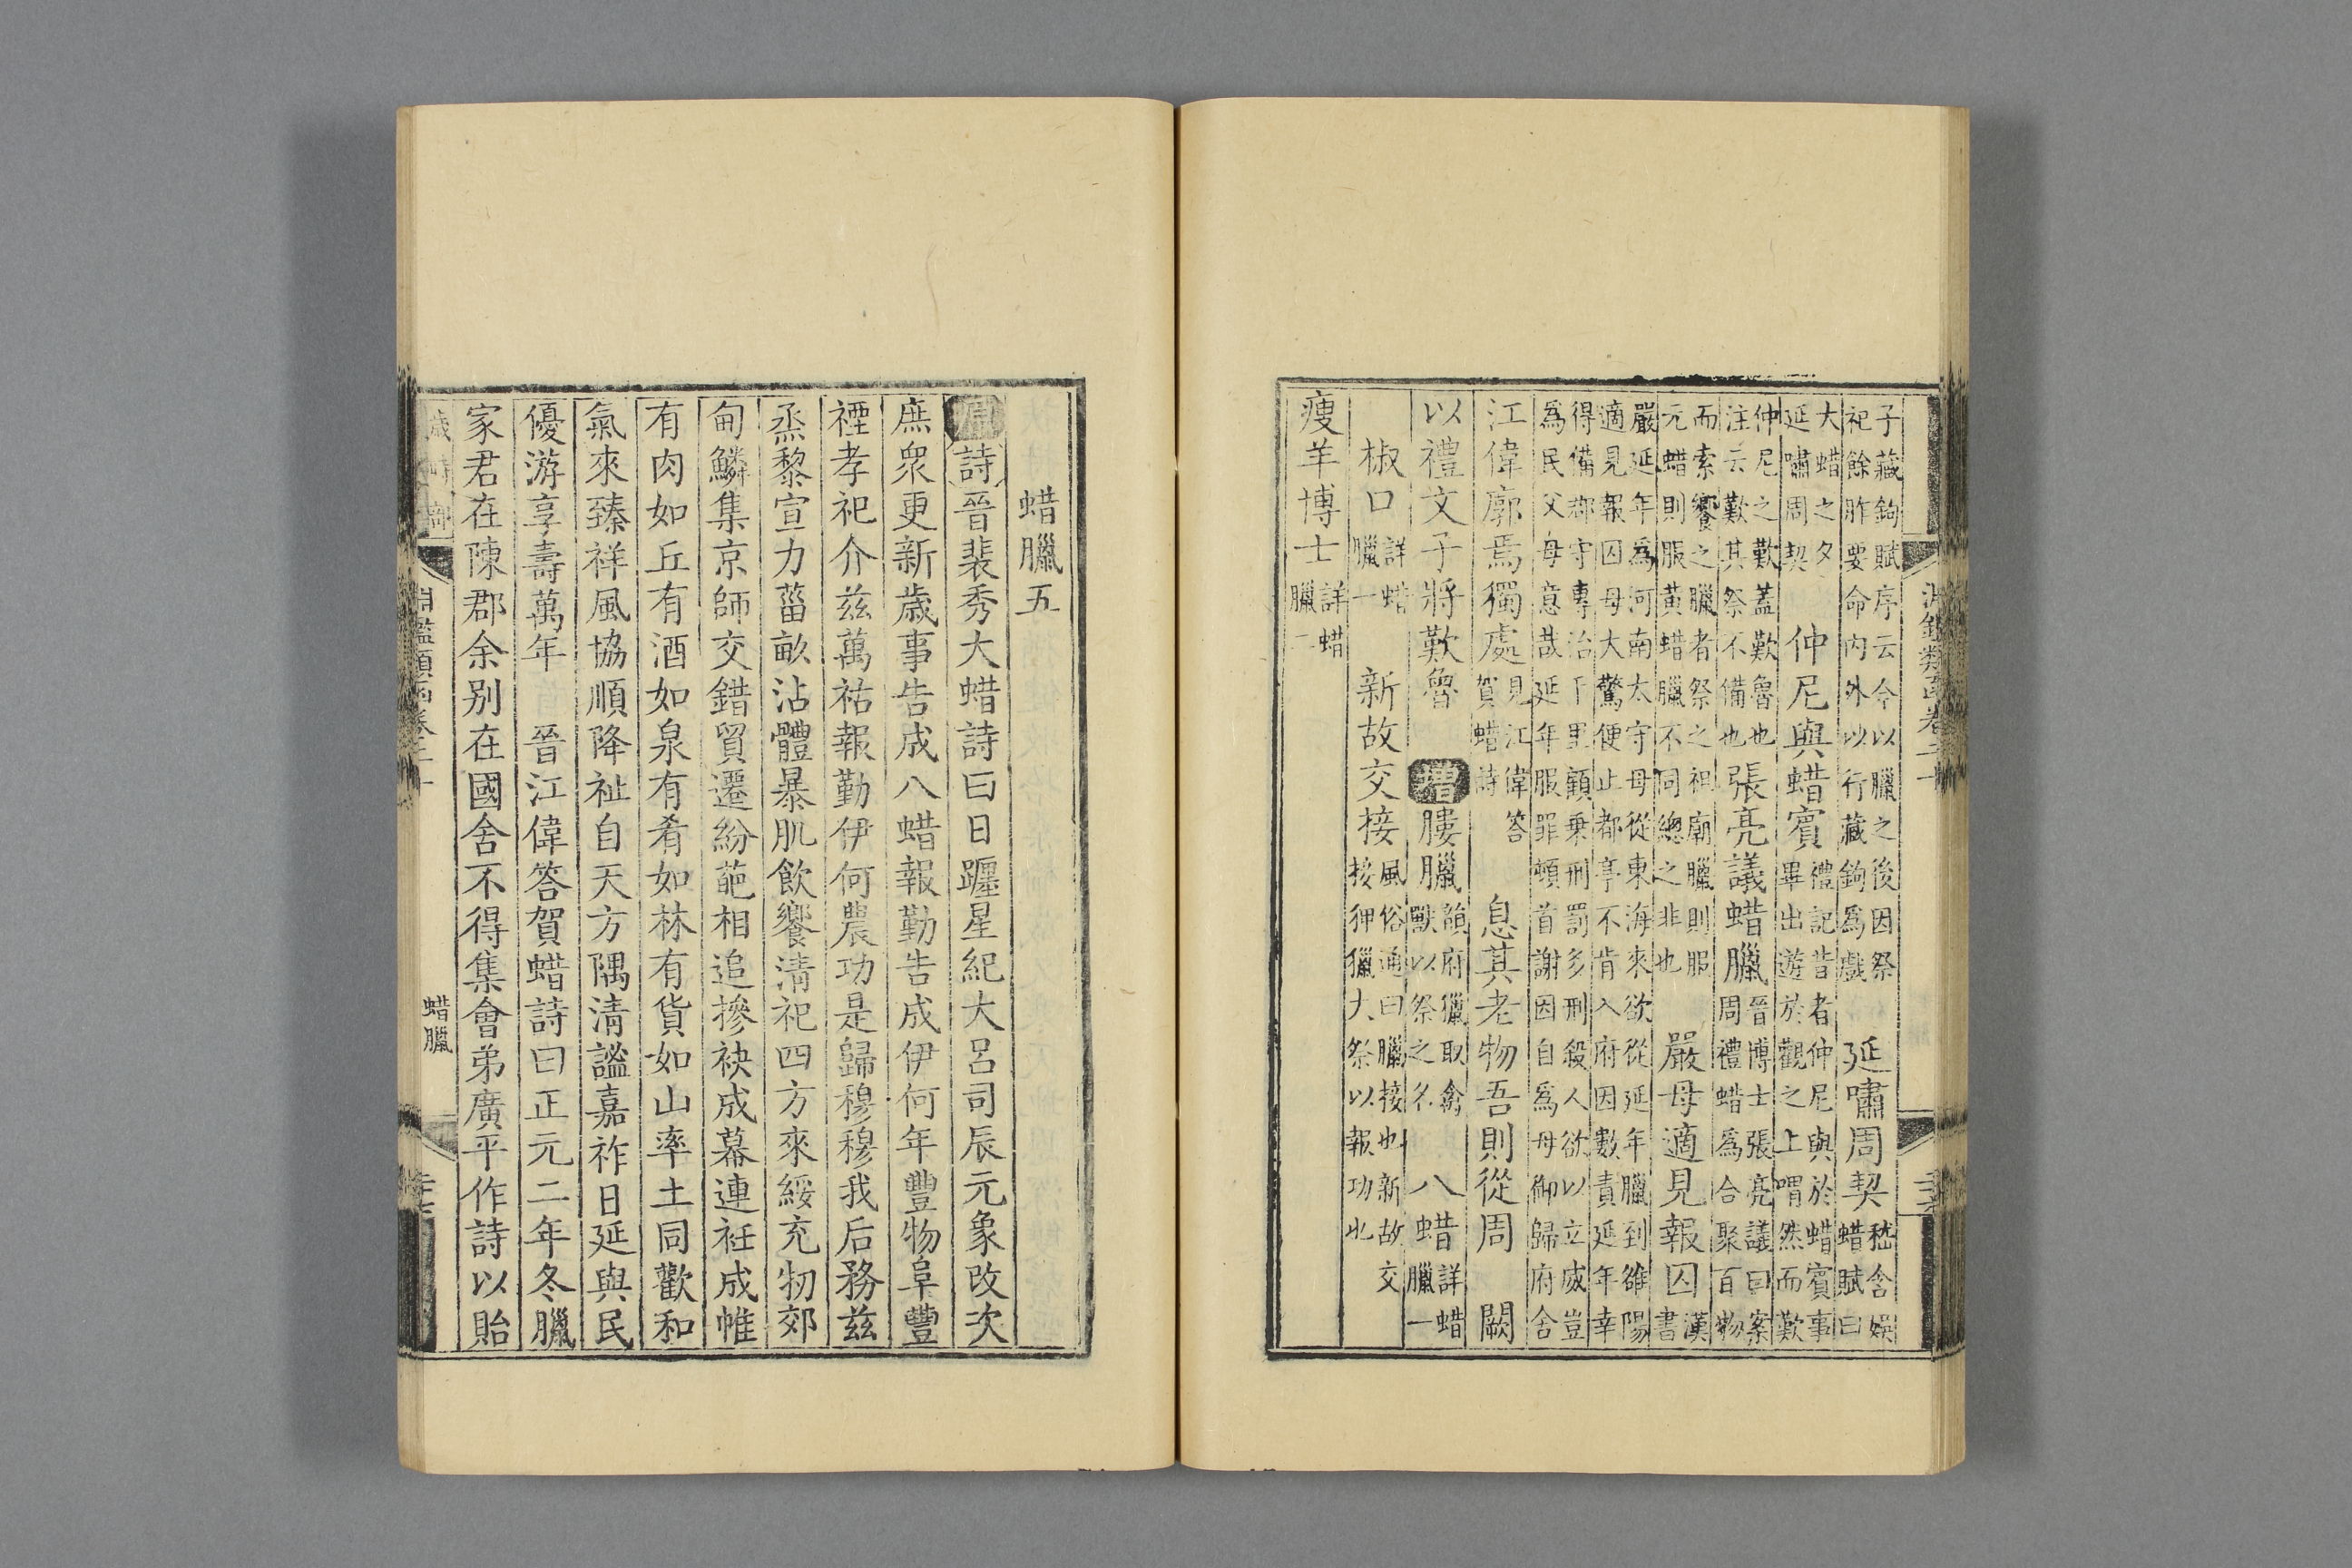 淵鑑類函卷二十
子藏鉤賦序云今以臘之後因祭祀餘胙要命內外以行藏鉤爲戲 延嘯周契嵇含娛蜡賦曰
大蜡之夕延嘯周契 仲尼與蜡賓禮記昔者仲尼與於蜡賓事畢出遊於觀之上喟然而歎
仲尼之歎蓋歎魯也注云歎其祭不備也 張亮議蜡臘晉博士張亮議曰案周禮蜡爲合聚百物
而索饗之臘者祭之祖廟臘則服元蜡則服黃蜡臘不同總之非也 嚴母適見報囚漢書
嚴延年爲河南太守母從東海來欲從延年臘到雒陽適見報囚母大驚便止都亭不肯入府因數責延年幸
得備郡守專治千里顧乗刑罰多刑殺人欲以立威豈爲民父母意哉延年服罪頓首謝因自爲母御歸府舍
江偉廓焉獨處見江偉答賀蜡詩 息其老物吾則從周 闕
以禮文子將歎魯 增膢臘韻府獵取禽獸以祭之名 八蜡詳蜡臘一
椒口詳蜡臘一 新故交接風俗通曰臘接也新故交接狎獵大祭以報功也
瘦羊博士詳蜡臘二
蜡臘五
原詩晉裴秀大蜡詩曰日躔星紀大呂司辰元象改次
庶衆更新歲事告成八蜡報勤告成伊何年豐物阜豐
禋孝祀介兹萬祜報勤伊何農功是歸穆穆我后務兹
烝黎宣力菑畝沾體暴肌飲饗清祀四方來綏充牣郊
甸鱗集京師交錯貿遷紛葩相追摻袂成幕連衽成帷
有肉如丘有酒如泉有肴如林有貨如山率土同歡和
氣來臻祥風協順降祉自天方隅清謐嘉祚日延與民
優游享壽萬年 晉江偉答賀蜡詩曰正元二年冬臘
家君在陳郡余别在國舍不得集會弟廣平作詩以貽
歲時部
淵鑑類函卷二十
蜡臘